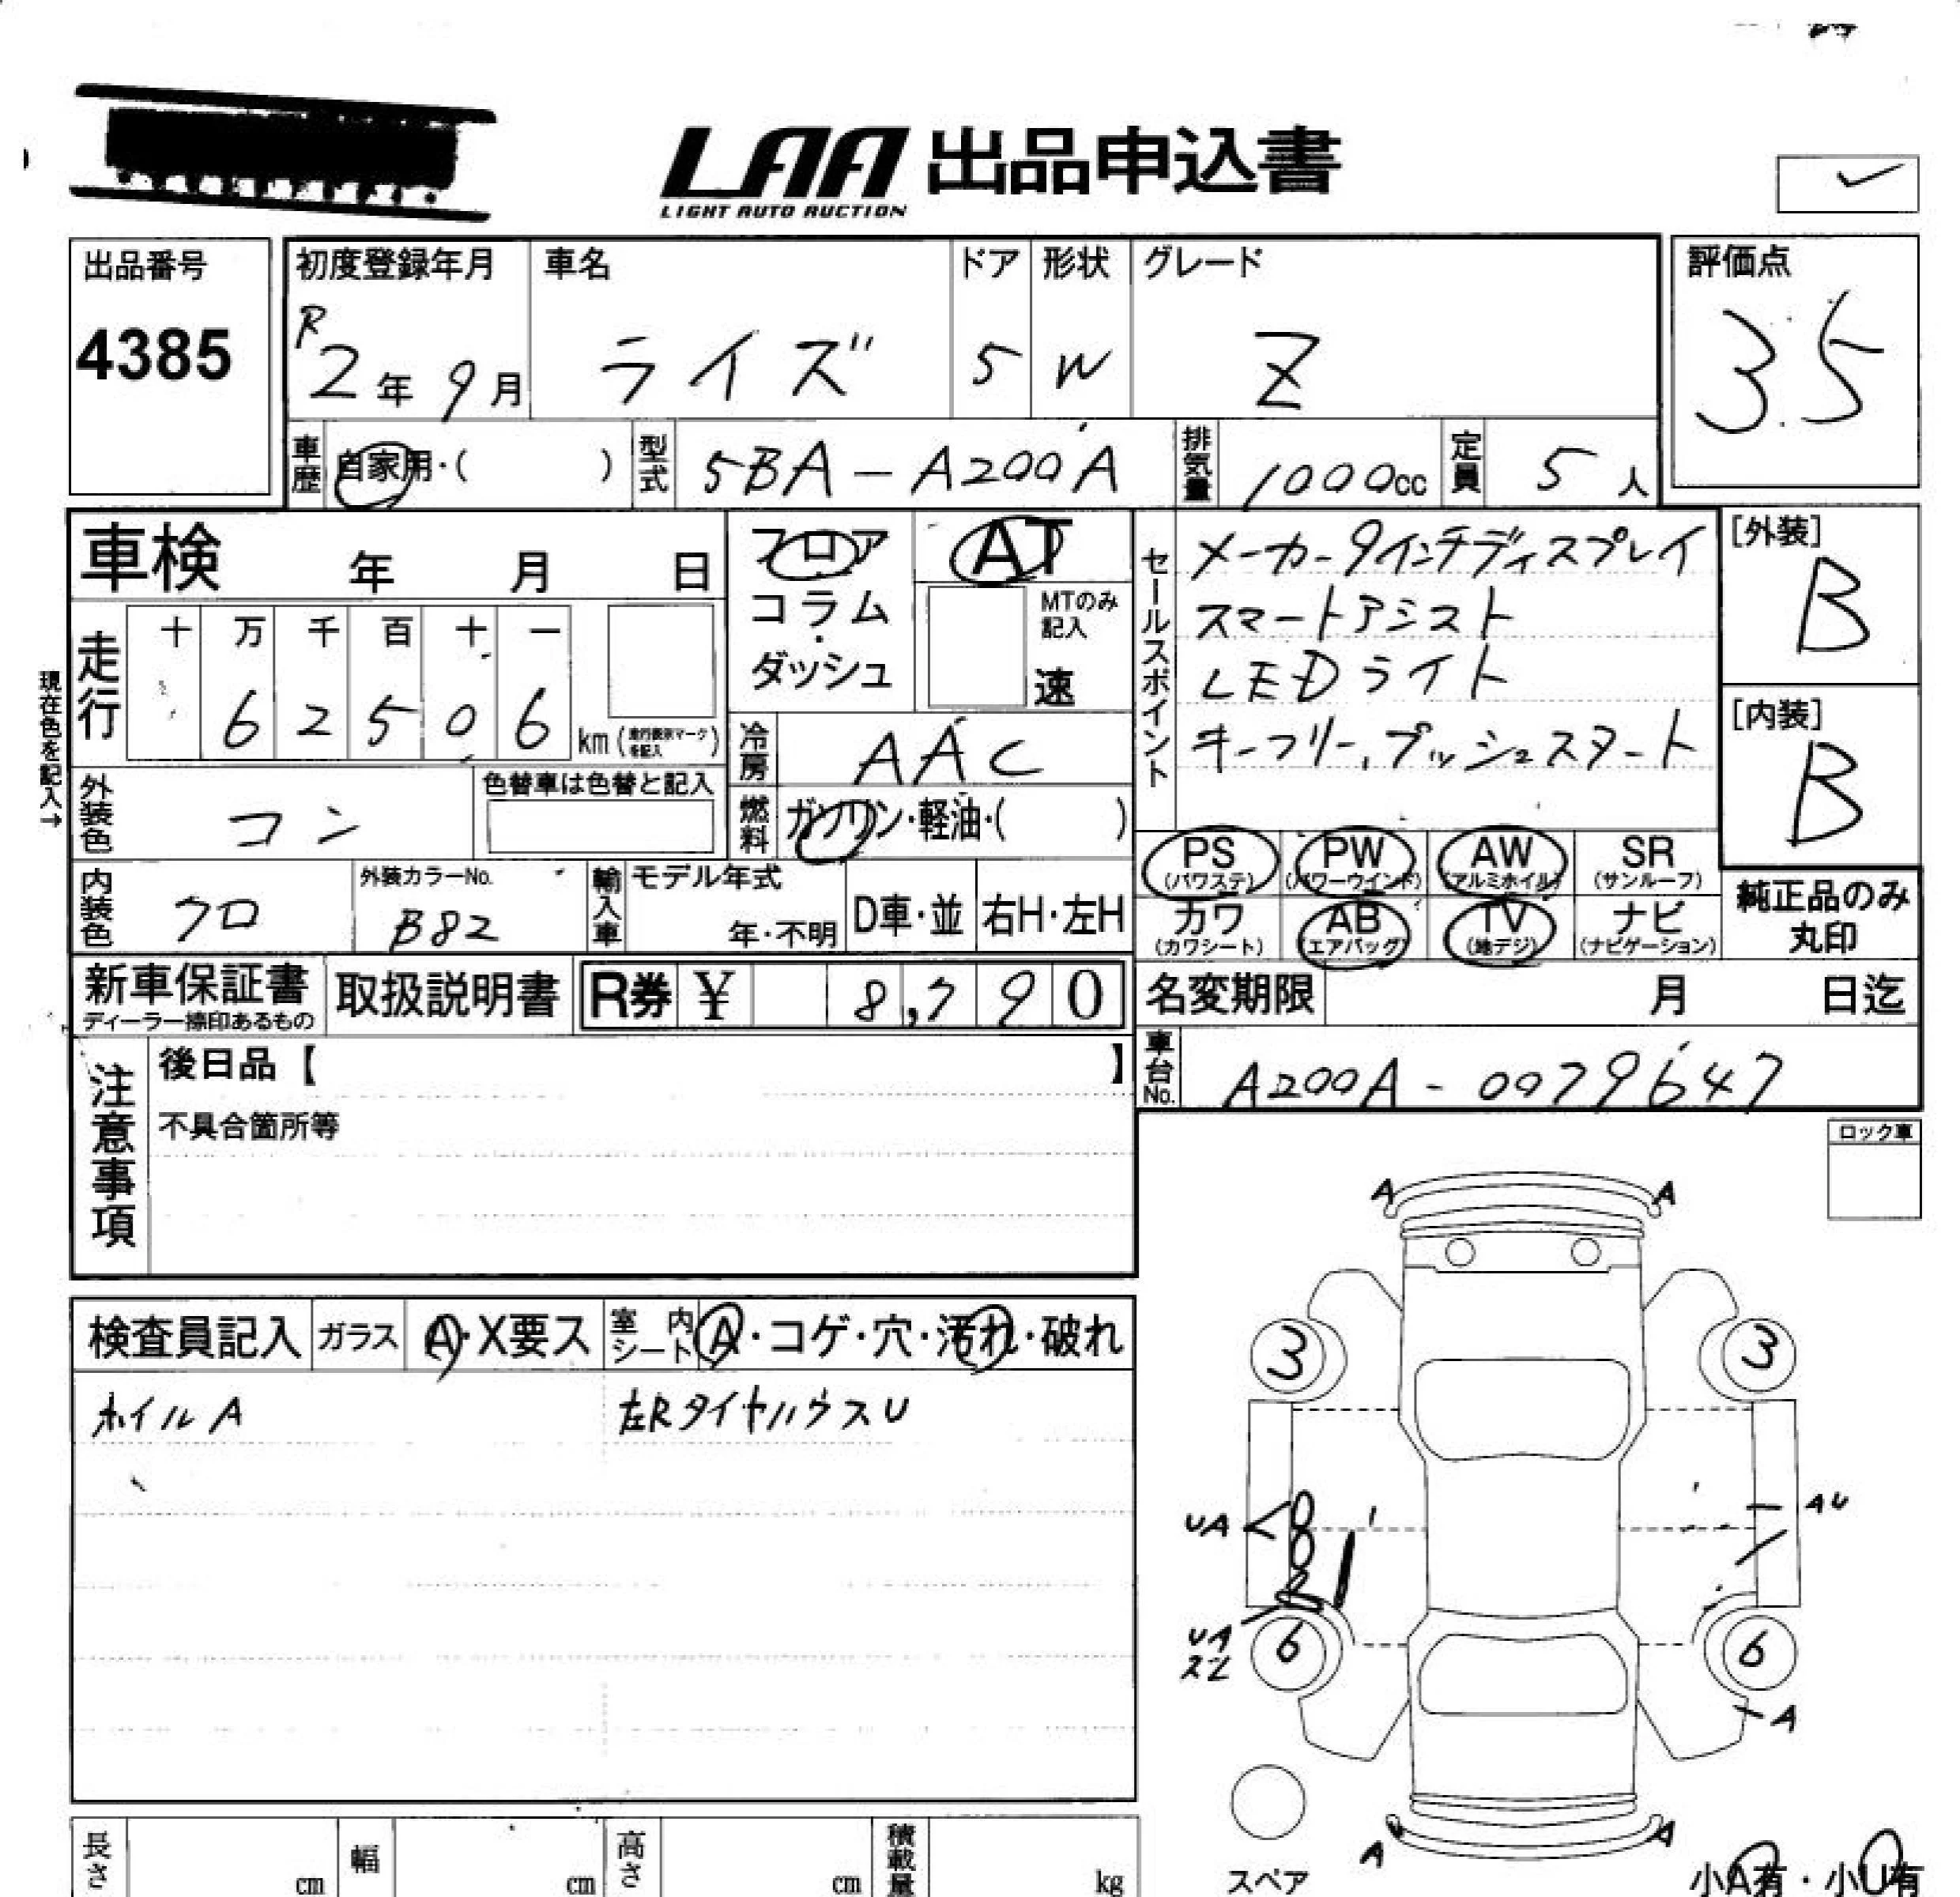 LAA 出品申込書
LIGHT AUTO AUCTION
出品番号
4385
初度登録年月
R2年9月
車名
ライズ
ドア
5
形状
W
グレード
Z
評価点
3.5
車歴
自家用・( )
型式
5BA-A200A
排気量
1000cc
定員
5人
車検 年 月 日
フロア
コラム
・
ダッシュ
AT
MTのみ
記入
速
セールスポイント
メーカー9インチディスプレイ
スマートアシスト
LEDライト
キーフリー,プッシュスタート
[外装]
B
[内装]
B
現在色を記入→
走行
十 万 千 百 十 一
6 2 5 0 6
km(走行表示マークを記入)
冷房
AAC
外装色
コン
色替車は色替と記入
燃料
ガソリン・軽油・( )
PS
(パワステ)
PW
(パワーウインド)
AW
(アルミホイル)
SR
(サンルーフ)
内装色
クロ
外装カラーNo.
B82
輸入車
モデル年式
年・不明
D車・並
右H・左H
カワ
(カワシート)
AB
(エアバッグ)
TV
(地デジ)
ナビ
(ナビゲーション)
純正品のみ
丸印
新車保証書
ディーラー捺印あるもの
取扱説明書
R券 ¥ 8,790
名変期限 月 日迄
車台No.
A200A-0079647
注意事項
後日品【 】
不具合箇所等
ロック車
A A
3 3
検査員記入
ガラス
A・X要ス
室内シート
A・コゲ・穴・汚れ・破れ
ホイルA
左RタイヤハウスU
UA
AU
UA
6 6
A
A A
スペア
小A有・小U有
長さ cm
幅 cm
高さ cm
積載量 kg